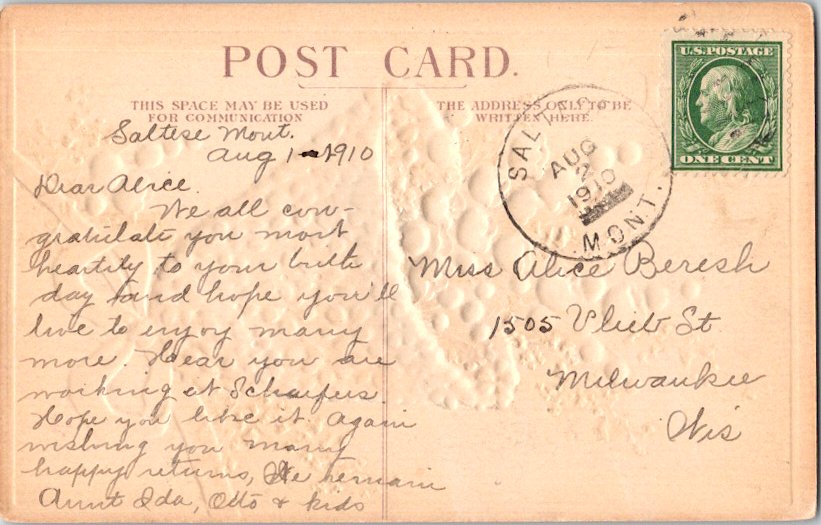 POST CARD.
THIS SPACE MAY BE USED
FOR COMMUNICATION
THE ADDRESS ONLY TO BE
WRITTEN HERE.
U.S. POSTAGE
ONE CENT
AUG
2
1910
MONT.
Saltese Mont.
Aug 1 - 1910
Dear Alice.
We all con-
gratulate you most
heartily to your birth
day and hope you'll
live to enjoy many
more. Hear you are
working at Schaefers.
Hope you like it. Again
wishing you many
happy returns, We remain
Aunt Ida, Otto & kids
Miss Alice Beresh
1505 Vlieb St
Milwaukee
Wis